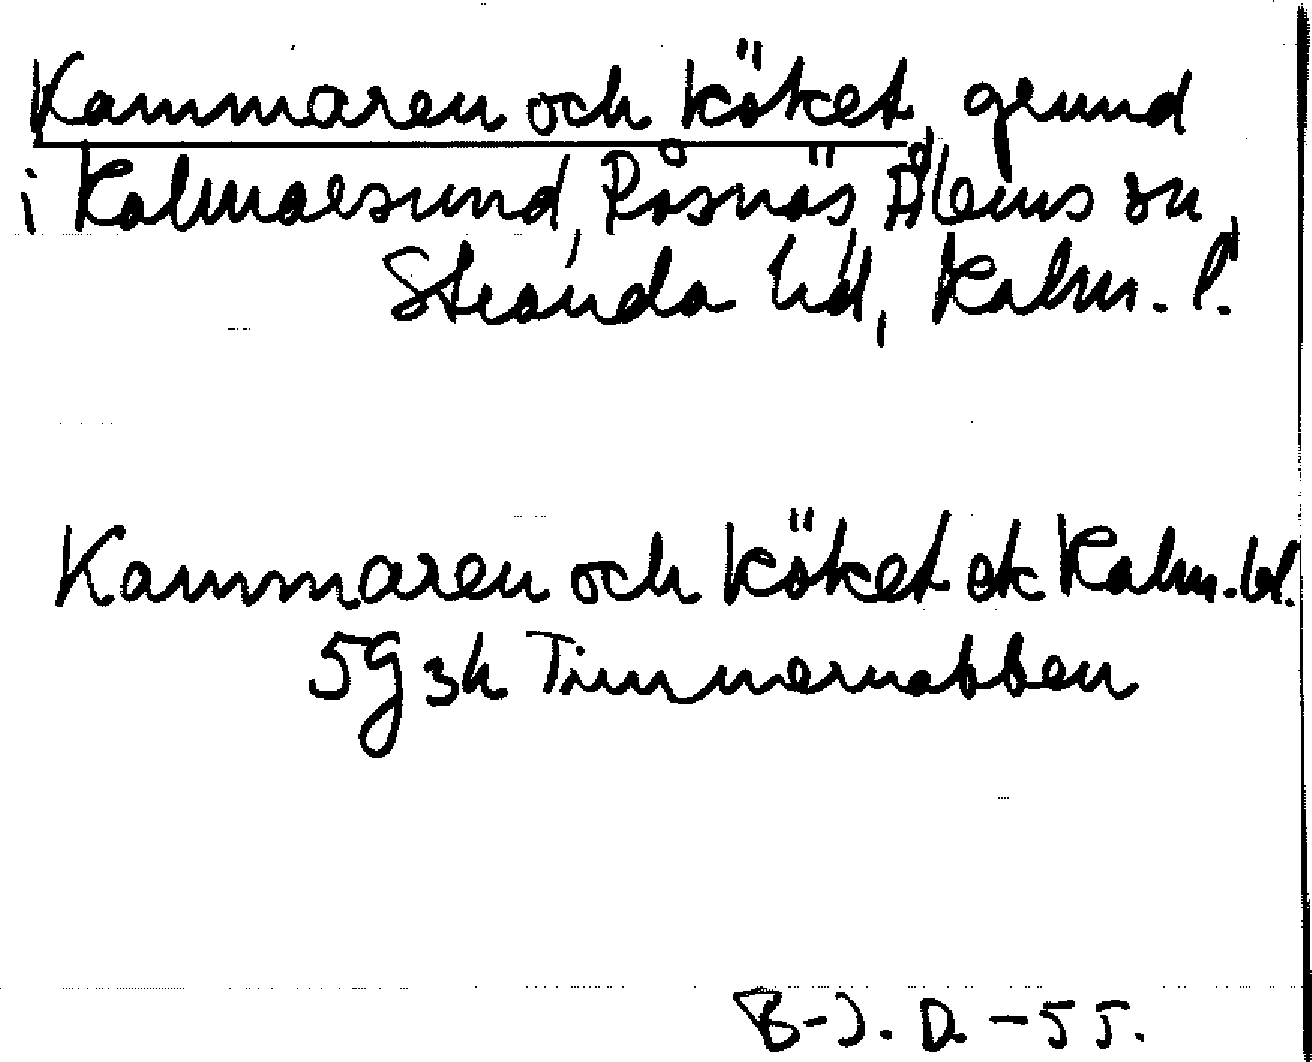 Kammaren och köket, grund
i Kalmarsund, Påsnäs, Ålems sn,
Stranda hd, Kalm. l.
Kammaren och köket ek Kalm. bl.
5g sh Timmernabben
B-J. D. -55.